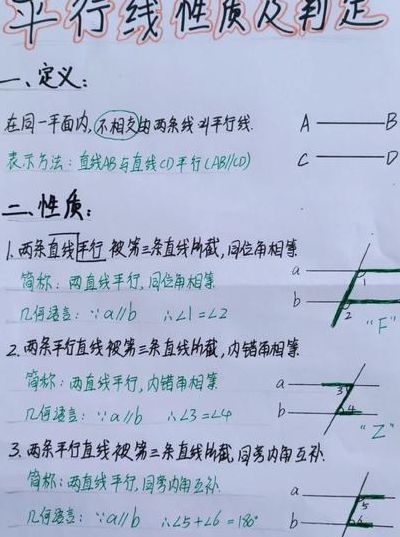 平行线性质及判定
一、定义:
在同一平面内,不相交的两条线叫平行线.
A B
表示方法:直线AB与直线CD平行(AB//CD)
C D
二、性质:
1.两条直线平行被第三条直线所截,同位角相等
简称:两直线平行,同位角相等
a
1
几何语言:∵a//b ∴∠1=∠2
b
2
"F"
2.两条平行直线被第三条直线所截,内错角相等
简称:两直线平行,内错角相等
a
3
几何语言:∵a//b ∴∠3=∠4
b
4
"Z"
3.两条平行直线被第三条直线所截,同旁内角互补.
简称:两直线平行,同旁内角互补
a
5
几何语言:∵a//b ∴∠5+∠6=180°
b
6